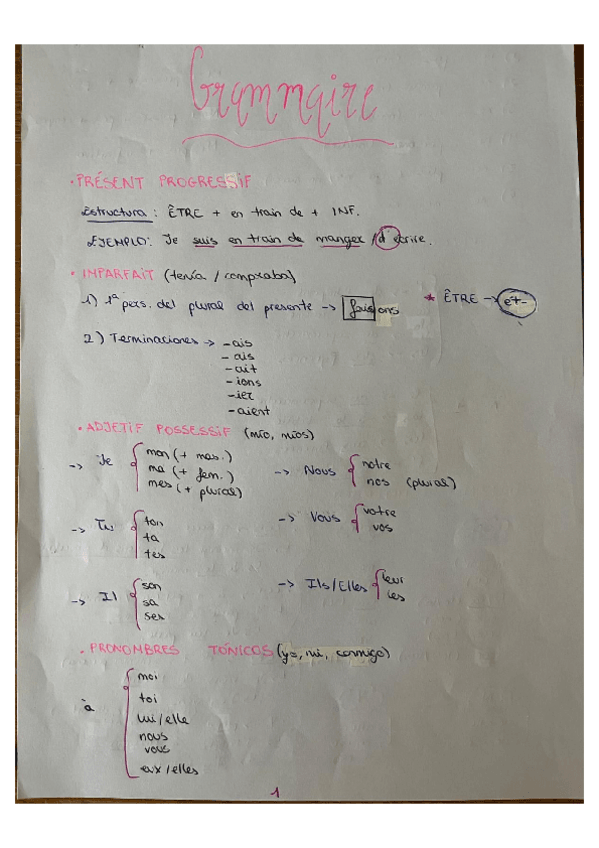 Grammaire
• PRÉSENT PROGRESSIF
Estructura: ÊTRE + en train de + INF.
EJEMPLO: Je suis en train de manger /d'écrire.
• IMPARFAIT (tenía / compraba)
1) 1ª pers. del plural del presente -> faisons * ÊTRE -> ét-
2) Terminaciones -> -ais
-ais
-ait
-ions
-ier
-aient
• ADJETIF POSSESSIF (mío, míos)
-> Je mon (+ mas.) -> Nous notre
ma (+ fem.) nos (plural)
mes (+ plural)
-> Tu ton -> Vous votre
ta vos
tes
-> Il son -> Ils/Elles leur
sa
ses
• PRONOMBRES TÓNICOS (yo, mi, conmigo)
à moi
toi
lui/elle
nous
vous
eux/elles
1